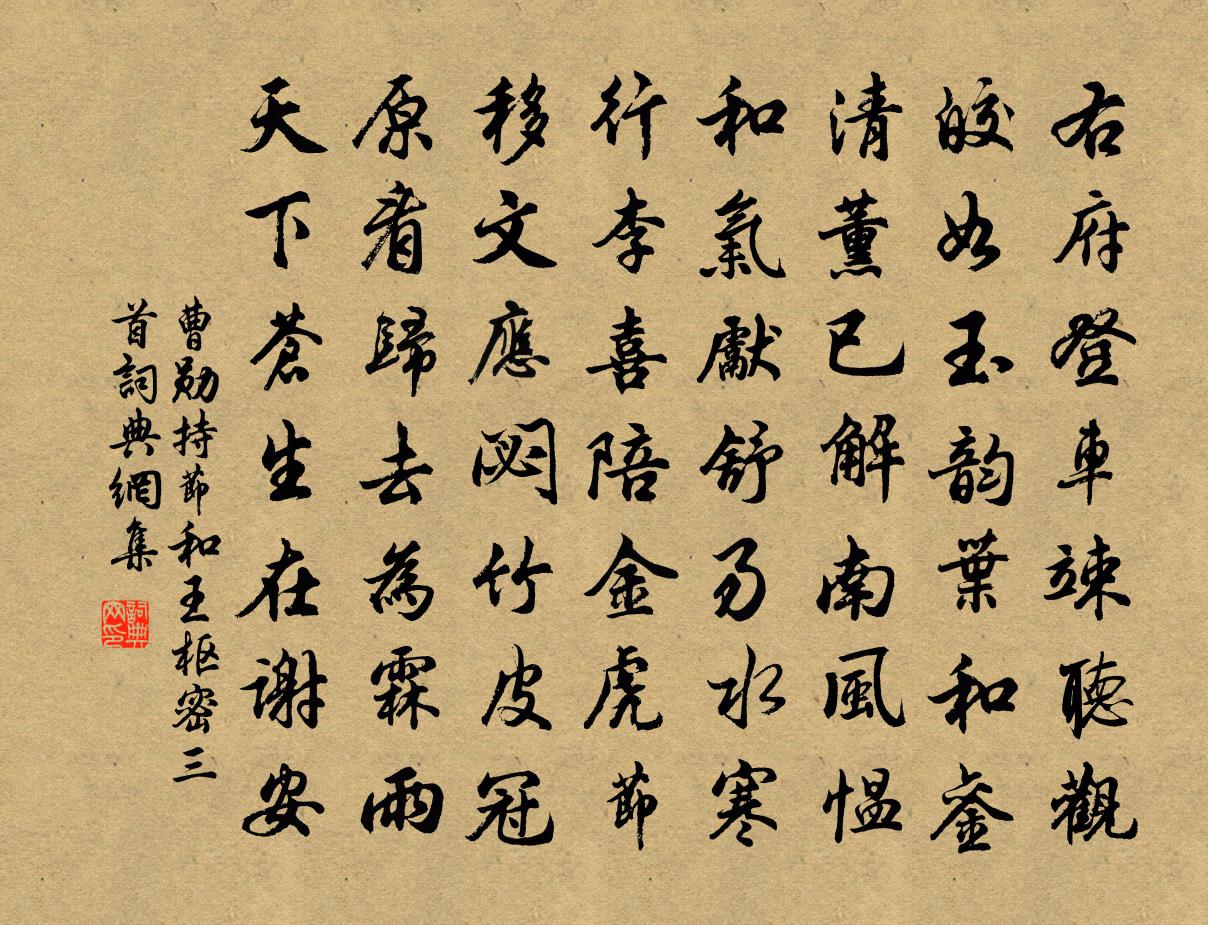 右府登車竦聽觀
皎如玉韵葉和銮
清薰已解南風愠
和氣獻舒易水寒
行李喜陪金虎節
移文應閟竹皮冠
原看歸去為霖雨
天下蒼生在谢安
曹勋持節和王枢密三
首詞典網集
詞典
网印